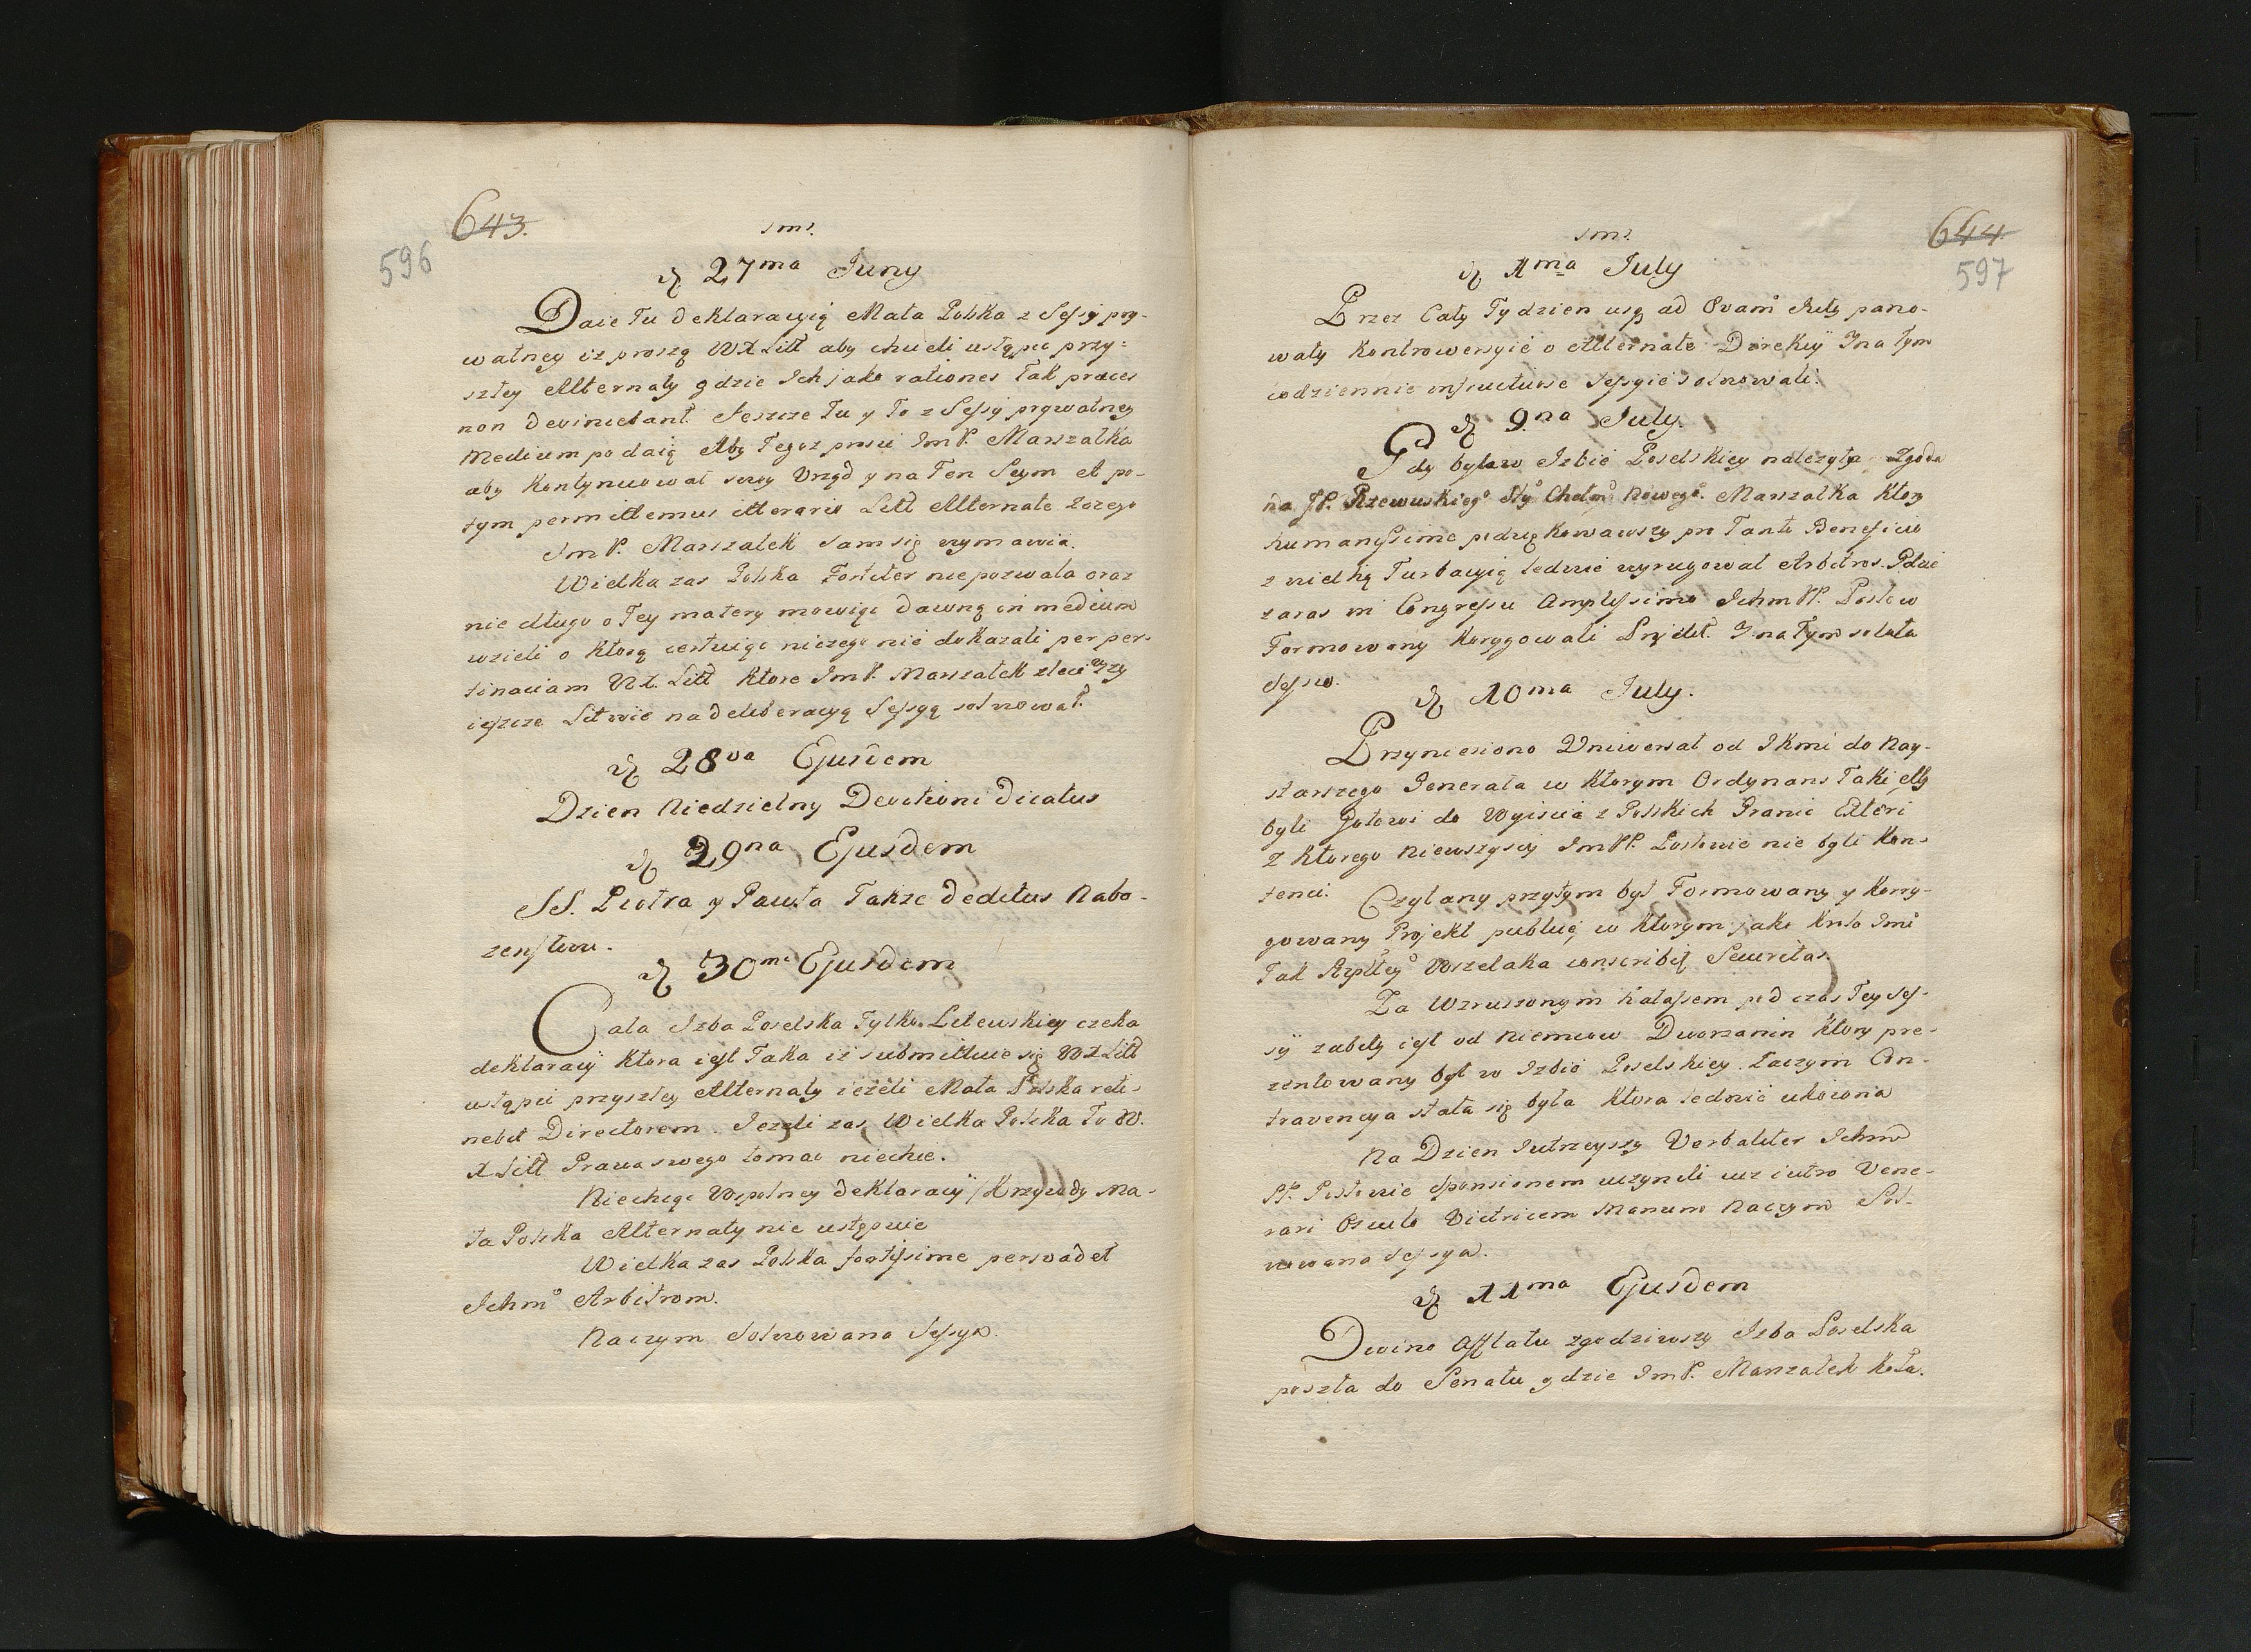 643.
596
d 27ma Juny
Daie Tu deklaracyią Mała Polska z Sessyi pry-
watney iż proszą WXLitt aby chcieli ustąpić przy-
szłey Alternaty gdzie Ich jako rationes Tak preces
non devincebant. Jeszcze Tu y To z Sessyi prywatney
Medium podaią Aby Tegoż prosić ImP. Marszałka
aby kontynuował swoy Urząd y na Ten Seym et po-
tym permittemus Litt Alternate czego
ImP. Marszałek sam się wymawia.
Wielka zas Polska Fortiter nie pozwala oraz
nie długo o Tey matery mowiąc dawną in medium
wzieli o ktorą certuiąc niczego nie dokazali per per-
tinaciam WX. Litt ktore ImP. Marszałek zleciwszy
ieszcze Litwie na deliberacyą Sessyą solwował.
d 28va Ejusdem
Dzien Niedzielny Devotioni dicatus
d 29na Ejusdem
SS. Piotra y Pawła Takze deditus Nabo-
zenstwu.
d 30ma Ejusdem
Cała Izba Poselska Tylko Litewskiey czeka
deklaracyi ktora iest Taka iż submittuie się WXLitt
ustąpić przyszłey Alternaty ieżeli Mała Polska reti-
nebit Directorem. Jezeli zas Wielka Polska To W.
X Litt Prawa swego łomać niechce.
Niechcąc Wspolney deklaracyi / Krzywdy Ma-
ła Polska Alternaty nie ustępuie
Wielka zas Polska fortissime persvadet
Ichmo Arbitrom.
Naczym Solwowana Sessya.
644.
597
d 1ma July
Przez Cały Tydzien usq ad 8vam July pano-
wały kontrowersyie o Alternate Dyrekcyi I na tym
codziennie infructuose Sessyie solwowali.
d 9na July.
Gdy była w Izbie Poselskiey należyta Zgoda
na JP. Rzewuskiego Stę Chełmo Nowego Marszałka ktory
humanissime podziękowawszy pro Tanto Beneficio
z wielką Turbacyią ledwie wyrugował Arbitros. Gdzie
zaras in Congressu Amplissimo Ichm PP. Posłow
Formowany korygowali Projekt. I na Tym soluta
Sessio.
d 10ma July.
Przyniesiono Uniwersał od JKmci do Nay-
starszego Jenerała w ktorym Ordynans Taki, Aby
byli Gotowi do Wyiscia z Polskich Granic Exteri
z ktorego Niewszyscy ImPP. Posłowie nie byli kon-
tenci. Czytany przytym był Formowany y korry-
gowany Projekt publice, w ktorym jako Krolo Jmci
Tak Rzpltey Wszelaka conscribit Securitas.
Za Wzruszonym hałassem pod czas Tey Ses-
syi zabity iest od Niemcow Dworzanin ktory pre-
zentowany był w Izbie Poselskiey. Zaczym Con-
travencya stała się była ktora ledwie ukoiona
Na Dzien Jutrzeyszy Verbaliter Ichmo
PP. Posłowie sponsionem uczynili iuz iutro Vene-
rari Osculo Victricem Manum Naczym Sol-
wowana Sessya.
d 11ma Ejusdem
Divino Afflatu zgodziwszy Izba Poselska
poszła do Senatu gdzie ImP. Marszałek Koła.